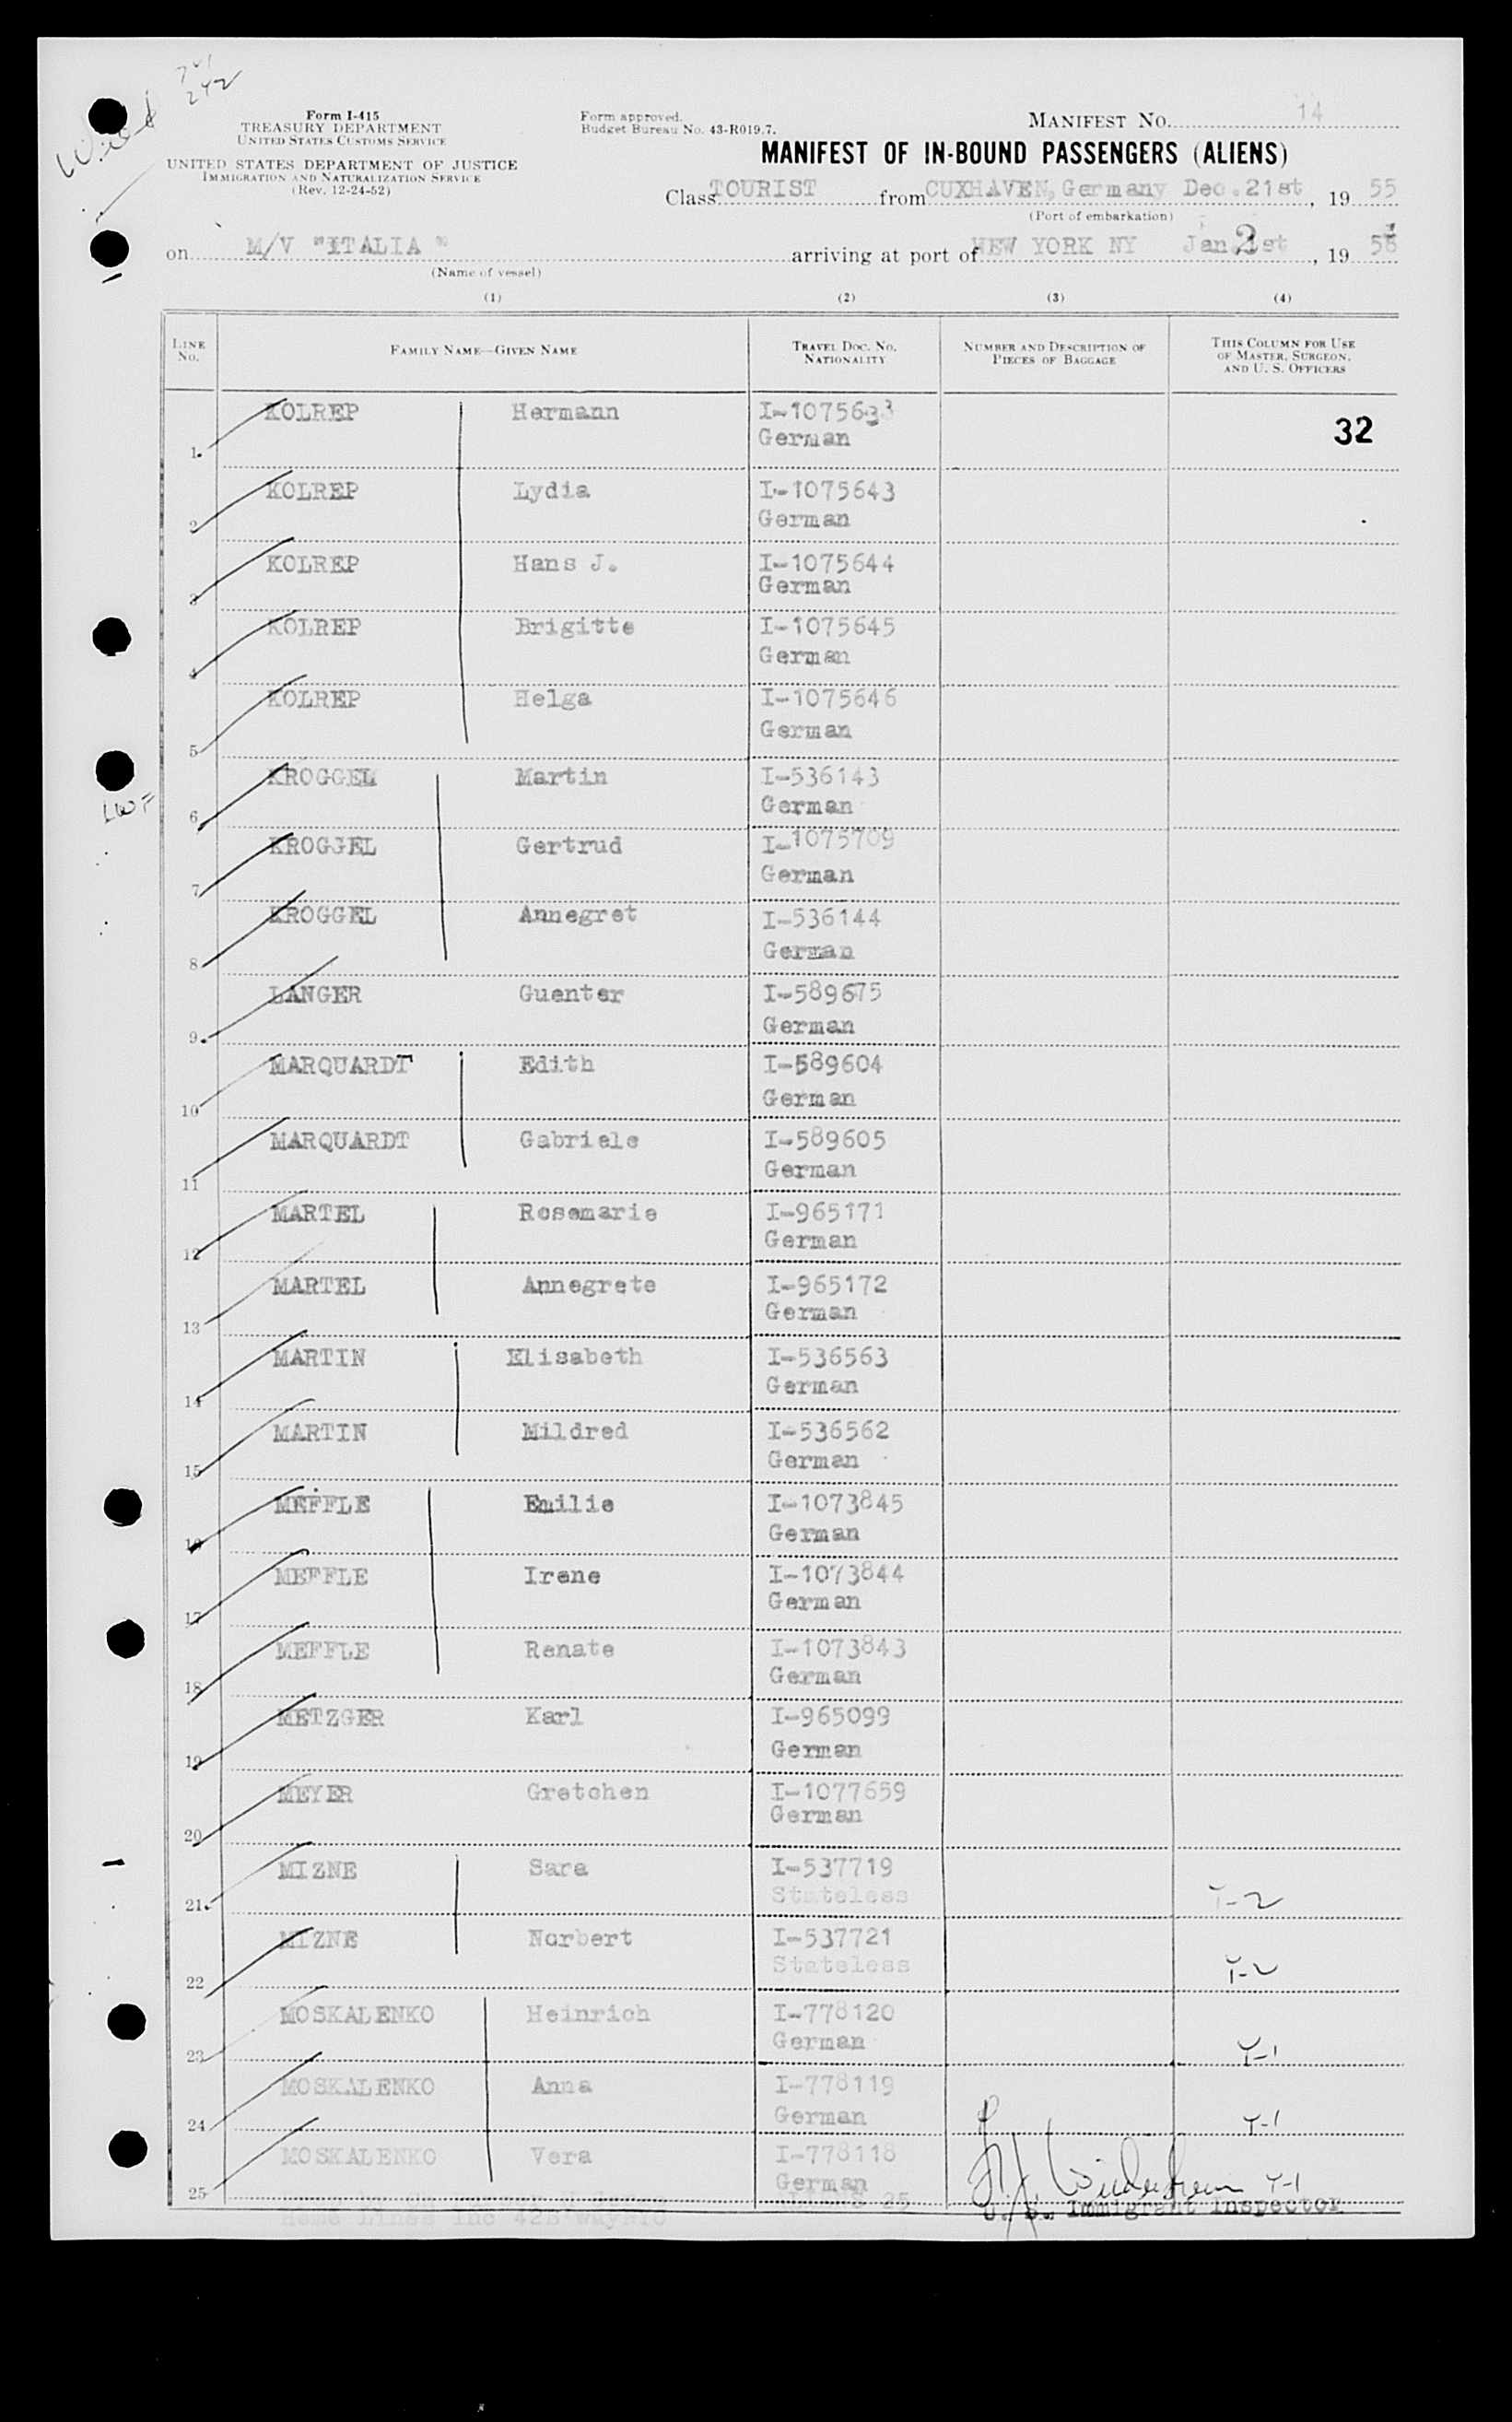 242
Form I-415
TREASURY DEPARTMENT
UNITED STATES CUSTOMS SERVICE
UNITED STATES DEPARTMENT OF JUSTICE
IMMIGRATION AND NATURALIZATION SERVICE
(Rev. 12-24-52)
Form approved.
Budget Bureau No. 43-R019.7.
MANIFEST NO. 14
MANIFEST OF IN-BOUND PASSENGERS (ALIENS)
Class TOURIST from CUXHAVEN, Germany Dec. 21st, 1955
(Port of embarkation)
on M/V "ITALIA" arriving at port of NEW YORK NY Jan 2st, 1956
(Name of vessel)
(1) (2) (3) (4)
LINE No. FAMILY NAME—GIVEN NAME TRAVEL DOC. NO. NATIONALITY NUMBER AND DESCRIPTION OF PIECES OF BAGGAGE THIS COLUMN FOR USE OF MASTER, SURGEON, AND U. S. OFFICERS
1. KOLREP Hermann I-1075633 32
German
2 KOLREP Lydia I-1075643
German
3 KOLREP Hans J. I-1075644
German
4 KOLREP Brigitte I-1075645
German
5 KOLREP Helga I-1075646
German
6 KROGGEL Martin I-536143
German
LWF
7 KROGGEL Gertrud I-1075709
German
8 KROGGEL Annegret I-536144
German
9. LANGER Guenter I-589675
German
10 MARQUARDT Edith I-589604
German
11 MARQUARDT Gabriele I-589605
German
12 MARTEL Rosemarie I-965171
German
13 MARTEL Annegrete I-965172
German
14 MARTIN Elisabeth I-536563
German
15 MARTIN Mildred I-536562
German
16 MEFFLE Emilie I-1073845
German
17 MEFFLE Irene I-1073844
German
18 MEFFLE Renate I-1073843
German
19 METZGER Karl I-965099
German
20 MEYER Gretchen I-1077659
German
21. MIZNE Sara I-537719
Stateless T-2
22 MIZNE Norbert I-537721
Stateless T-2
23 MOSKALENKO Heinrich I-778120
German T-1
24 MOSKALENKO Anna I-778119
German T-1
25 MOSKALENKO Vera I-778118
German T-1
Home Lines Inc 42 25
U. S. Immigrant Inspector